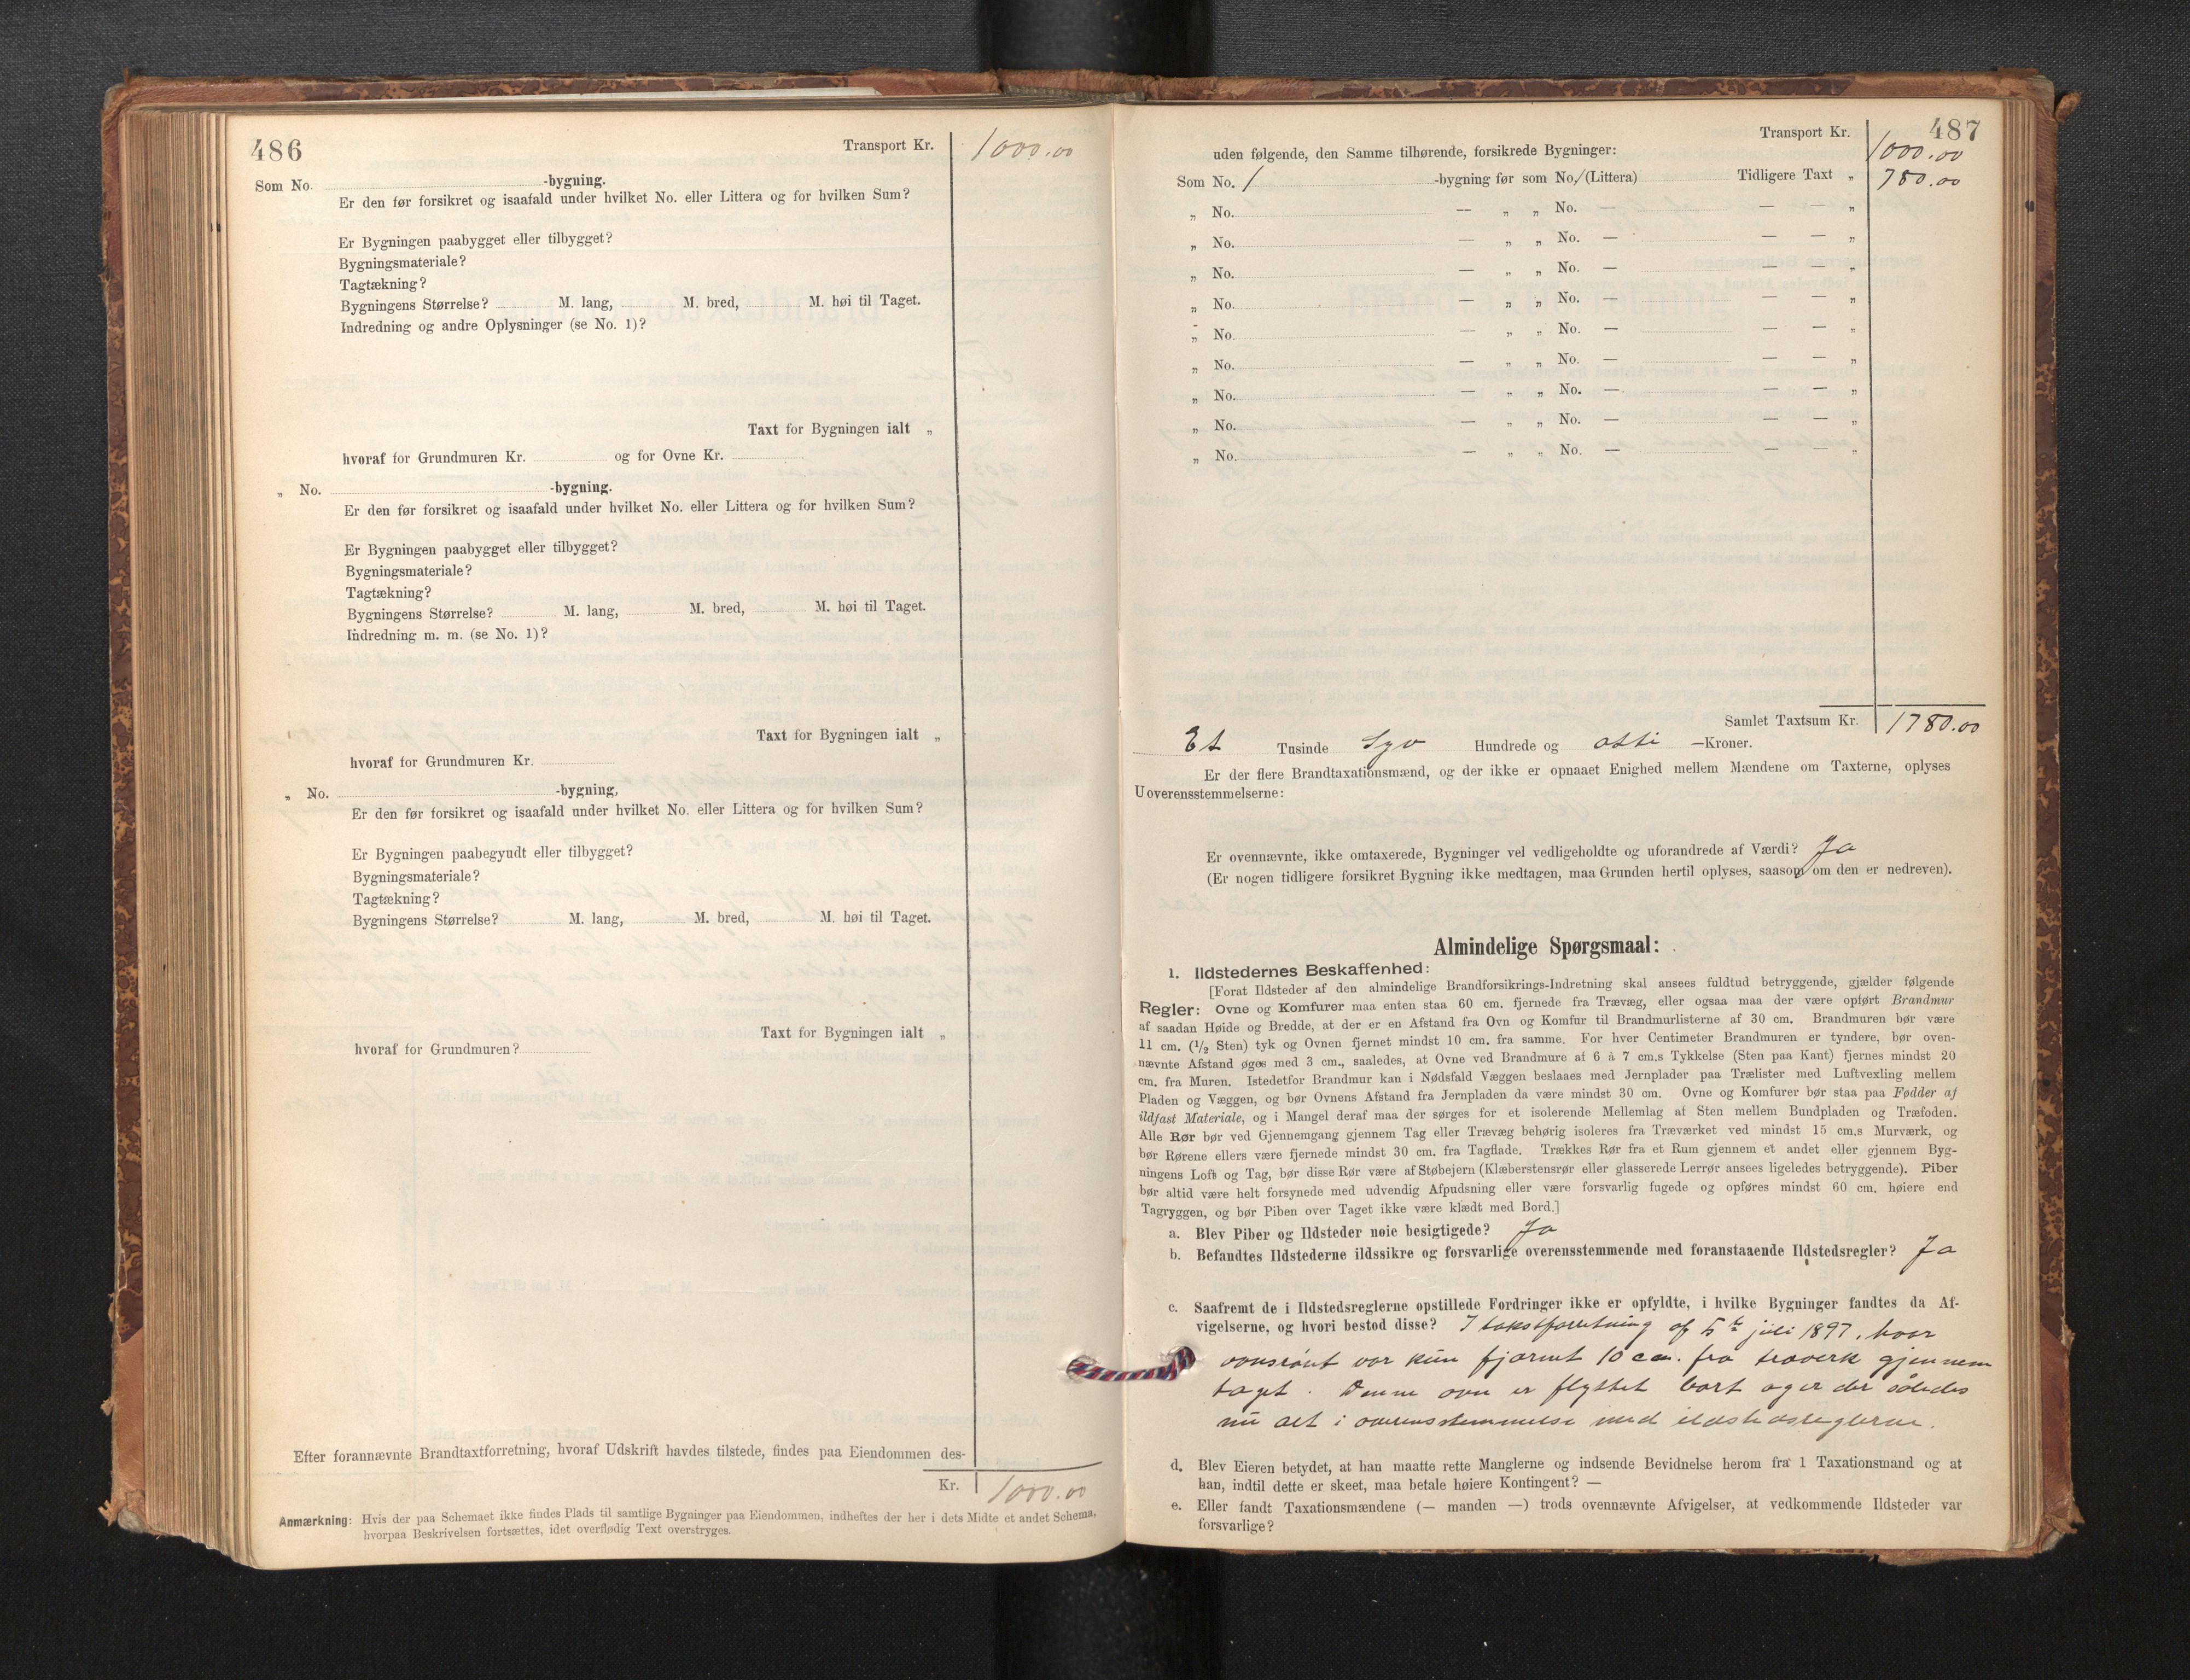 486
Transport Kr. 1000.00
Som No. -bygning.
Er den før forsikret og isaafald under hvilket No. eller Littera og for hvilken Sum?
Er Bygningen paabygget eller tilbygget?
Bygningsmateriale?
Tagtækning?
Bygningens Størrelse? M. lang, M. bred, M. høi til Taget.
Indredning og andre Oplysninger (se No. 1)?
Taxt for Bygningen ialt „
hvoraf for Grundmuren Kr. og for Ovne Kr.
„ No. -bygning.
Er den før forsikret og isaafald under hvilket No. eller Littera og for hvilken Sum?
Er Bygningen paabygget eller tilbygget?
Bygningsmateriale?
Tagtækning?
Bygningens Størrelse? M. lang, M. bred, M. høi til Taget.
Indredning m. m. (se No. 1)?
Taxt for Bygningen ialt „
hvoraf for Grundmuren Kr.
„ No. -bygning,
Er den før forsikret og isaafald under hvilket No. eller Littera og for hvilken Sum?
Er Bygningen paabegyudt eller tilbygget?
Bygningsmateriale?
Tagtækning?
Bygningens Størrelse? M. lang, M. bred, M. høi til Taget.
Taxt for Bygningen ialt „
hvoraf for Grundmuren?
Efter forannævnte Brandtaxtforretning, hvoraf Udskrift havdes tilstede, findes paa Eiendommen des-
Kr. 1000.00
Anmærkning: Hvis der paa Schemaet ikke findes Plads til samtlige Bygninger paa Eiendommen, indheftes der her i dets Midte et andet Schema,
hvorpaa Beskrivelsen fortsættes, idet overflødig Text overstryges.
487
Transport Kr. 1000.00
uden følgende, den Samme tilhørende, forsikrede Bygninger:
Som No. 1 -bygning før som No./(Littera) Tidligere Taxt „ 780.00
„ No. — „ „ No. — — — „
„ No. — „ „ No. — — — „
„ No. — „ „ No. — — — „
„ No. — „ „ No. — — — „
„ No. — „ „ No. — — — „
„ No. — „ „ No. — — — „
„ No. — „ „ No. — — — „
„ No. — „ „ No. — — — „
„ No. — „ „ No. — — — „
Samlet Taxtsum Kr. 1780.00
Et Tusinde Syv Hundrede og otti —Kroner.
Er der flere Brandtaxationsmænd, og der ikke er opnaaet Enighed mellem Mændene om Taxterne, oplyses
Uoverensstemmelserne:
Er ovennævnte, ikke omtaxerede, Bygninger vel vedligeholdte og uforandrede af Værdi? Ja
(Er nogen tidligere forsikret Bygning ikke medtagen, maa Grunden hertil oplyses, saasom om den er nedreven).
Almindelige Spørgsmaal:
1. Ildstedernes Beskaffenhed:
[Forat Ildsteder af den almindelige Brandforsikrings-Indretning skal ansees fuldtud betryggende, gjælder følgende
Regler: Ovne og Komfurer maa enten staa 60 cm. fjernede fra Trævæg, eller ogsaa maa der være opført Brandmur
af saadan Høide og Bredde, at der er en Afstand fra Ovn og Komfur til Brandmurlisterne af 30 cm. Brandmuren bør være
11 cm. (1/2 Sten) tyk og Ovnen fjernet mindst 10 cm. fra samme. For hver Centimeter Brandmuren er tyndere, bør oven-
nævnte Afstand øges med 3 cm., saaledes, at Ovne ved Brandmure af 6 à 7 cm.s Tykkelse (Sten paa Kant) fjernes mindst 20
cm. fra Muren. Istedetfor Brandmur kan i Nødsfald Væggen beslaaes med Jernplader paa Trælister med Luftvexling mellem
Pladen og Væggen, og bør Ovnens Afstand fra Jernpladen da være mindst 30 cm. Ovne og Komfurer bør staa paa Fødder af
ildfast Materiale, og i Mangel deraf maa der sørges for et isolerende Mellemlag af Sten mellem Bundpladen og Træfoden.
Alle Rør bør ved Gjennemgang gjennem Tag eller Trævæg behørig isoleres fra Træværket ved mindst 15 cm.s Murværk, og
bør Rørene ellers være fjernede mindst 30 cm. fra Tagflade. Trækkes Rør fra et Rum gjennem et andet eller gjennem Byg-
ningens Loft og Tag, bør disse Rør være af Støbejern (Klæberstensrør eller glasserede Lerrør ansees ligeledes betryggende). Piber
bør altid være helt forsynede med udvendig Afpudsning eller være forsvarlig fugede og opføres mindst 60 cm. høiere end
Tagryggen, og bør Piben over Taget ikke være klædt med Bord.]
a. Blev Piber og Ildsteder nøie besigtigede? Ja
b. Befandtes Ildstederne ildssikre og forsvarlige overensstemmende med foranstaaende Ildstedsregler? Ja
c. Saafremt de i Ildstedsreglerne opstillede Fordringer ikke er opfyldte, i hvilke Bygninger fandtes da Af-
vigelserne, og hvori bestod disse? I takstforretning af 5te juli 1897, hvor
ovnsrøret var kun fjærnet 10 cm. fra træverk gjennem
taget. Denne ovn er flyttet bort og er der således
nu alt i overensstemmelse med ildstedsreglerne.
d. Blev Eieren betydet, at han maatte rette Manglerne og indsende Bevidnelse herom fra 1 Taxationsmand og at
han, indtil dette er skeet, maa betale høiere Kontingent? —
e. Eller fandt Taxationsmændene (— manden —) trods ovennævnte Afvigelser, at vedkommende Ildsteder var
forsvarlige?